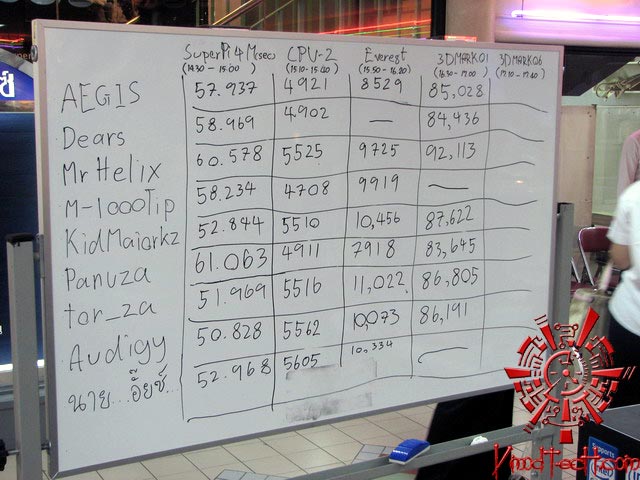 SuperPi 4 M(sec) CPU-2 Everest 3DMARK01 3DMARK06
(14:30 - 15:00) (15:10 - 15:40) (15:50 - 16:20) (16:30 - 17:00) (17:10 - 17:40)
AEGIS 57.937 4921 8529 85,028
Dears 58.969 4902 — 84,436
Mr Helix 60.578 5525 9725 92,113
M-1000Tip 58.234 4708 9919 —
KidMaiarkz 52.844 5510 10,456 87,622
Panuza 61.063 4911 7918 83,645
tor_za 51.969 5516 11,022 86,805
Audigy 50.828 5562 10,073 86,191
นาย...อุ๊ยซ์.. 52.968 5605 10,334 —